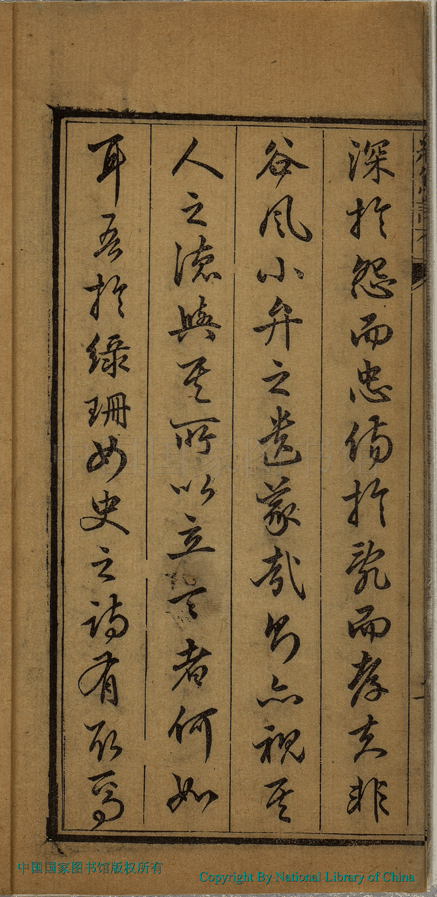 深於怨而忠傷於亂而孝夫非
谷風小弁之遺義哉則亦視其
人之德與其所以立言者何如
耳吾於綠珊女史之詩有取焉
中国国家图书馆版权所有
Copyright By National Library of China